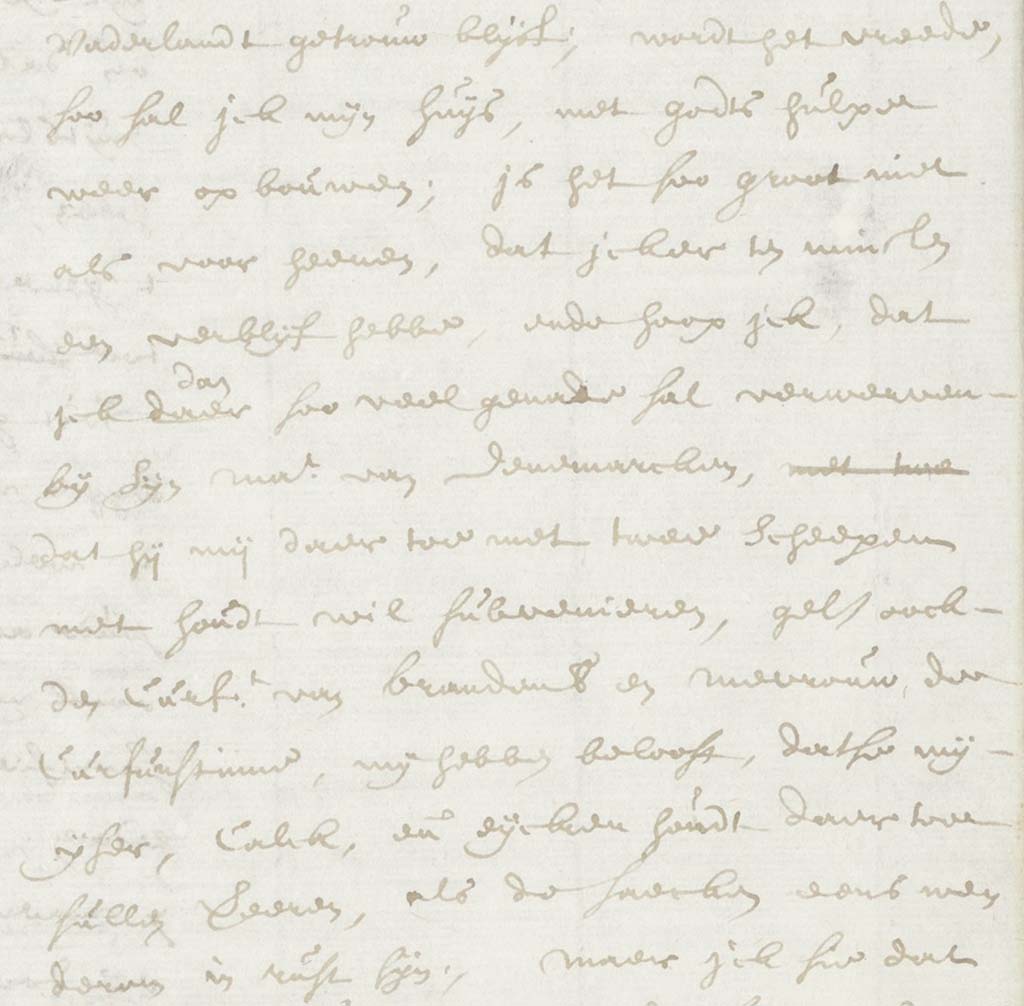 Vaderlandt getrouw blijft; wordt het vreede,
soo sal jck mijn huijs, met godts hulpe
weer op bouwen; js het soo groot niet
als voor heenen, dat jcker ten minsten
een verblijf hebbe, ende hoop jck, dat
dan
jck daer soo veel genade sal verwerven
bij Sijn Mat. van Denemarcken, met twe
dat hij mij daer toe met twee Scheepen
met houdt wil subvenieren, gelJ oock
den Curft. van brandenb en mevrouw de
Curfurstinne, mij hebben belooft, datse mij
ijser, Calck, en eijcken houdt daer toe
sullen Leeren, als de saecken eens wey
deram in rust sijn; Maer jck sie dat